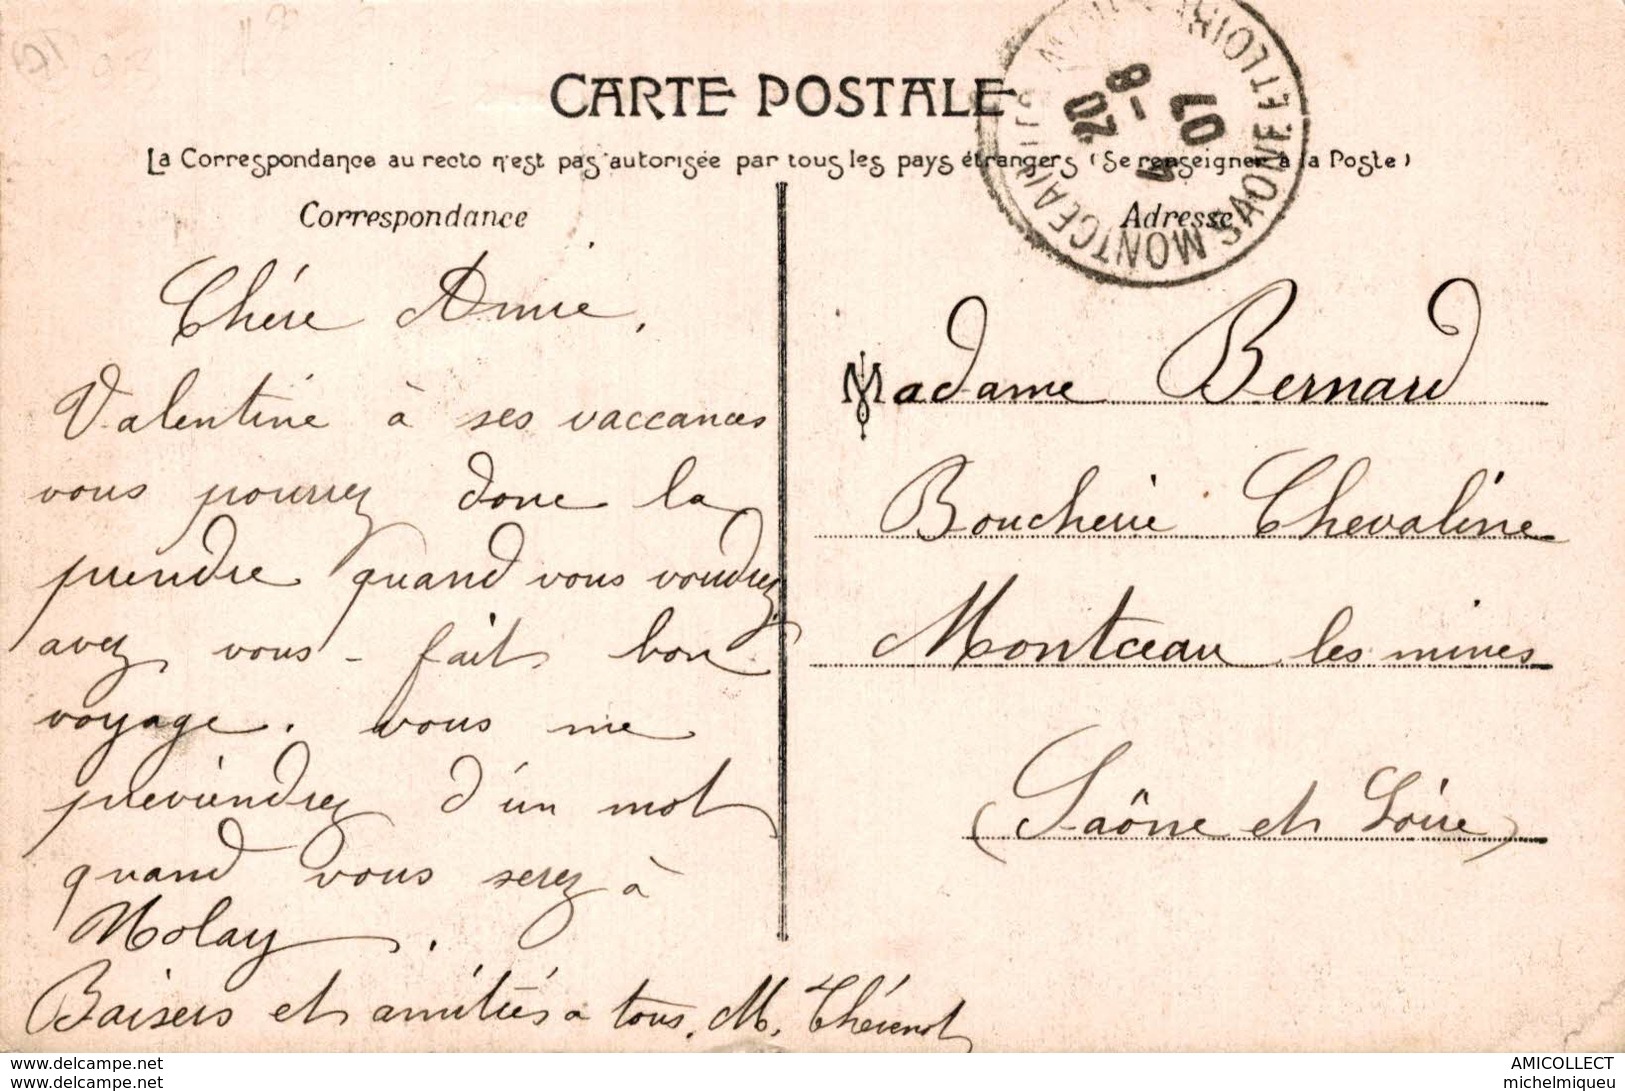 CARTE POSTALE
La Correspondance au recto n'est pas autorisée par tous les pays étrangers (Se renseigner à la Poste)
Correspondance
Chére Amie,
Valentine à ses vaccances
vous pourrez donc la
prendre quand vous voudrez
avez vous-fait bon
voyage. vous me
previendrez d'un mot
quand vous serez à
Molay.
Baisers et amitiés a tous. M. Thévenot
Adresse
Madame Bernard
Boucherie Chevaline
Montceau les mines
(Saône et Loire)
MONTCEAU LES MINES
SAONE ET LOIRE
8 -
20
4
07
www.delcampe.net
www.delcampe.net
AMICOLLECT
michelmiqueu